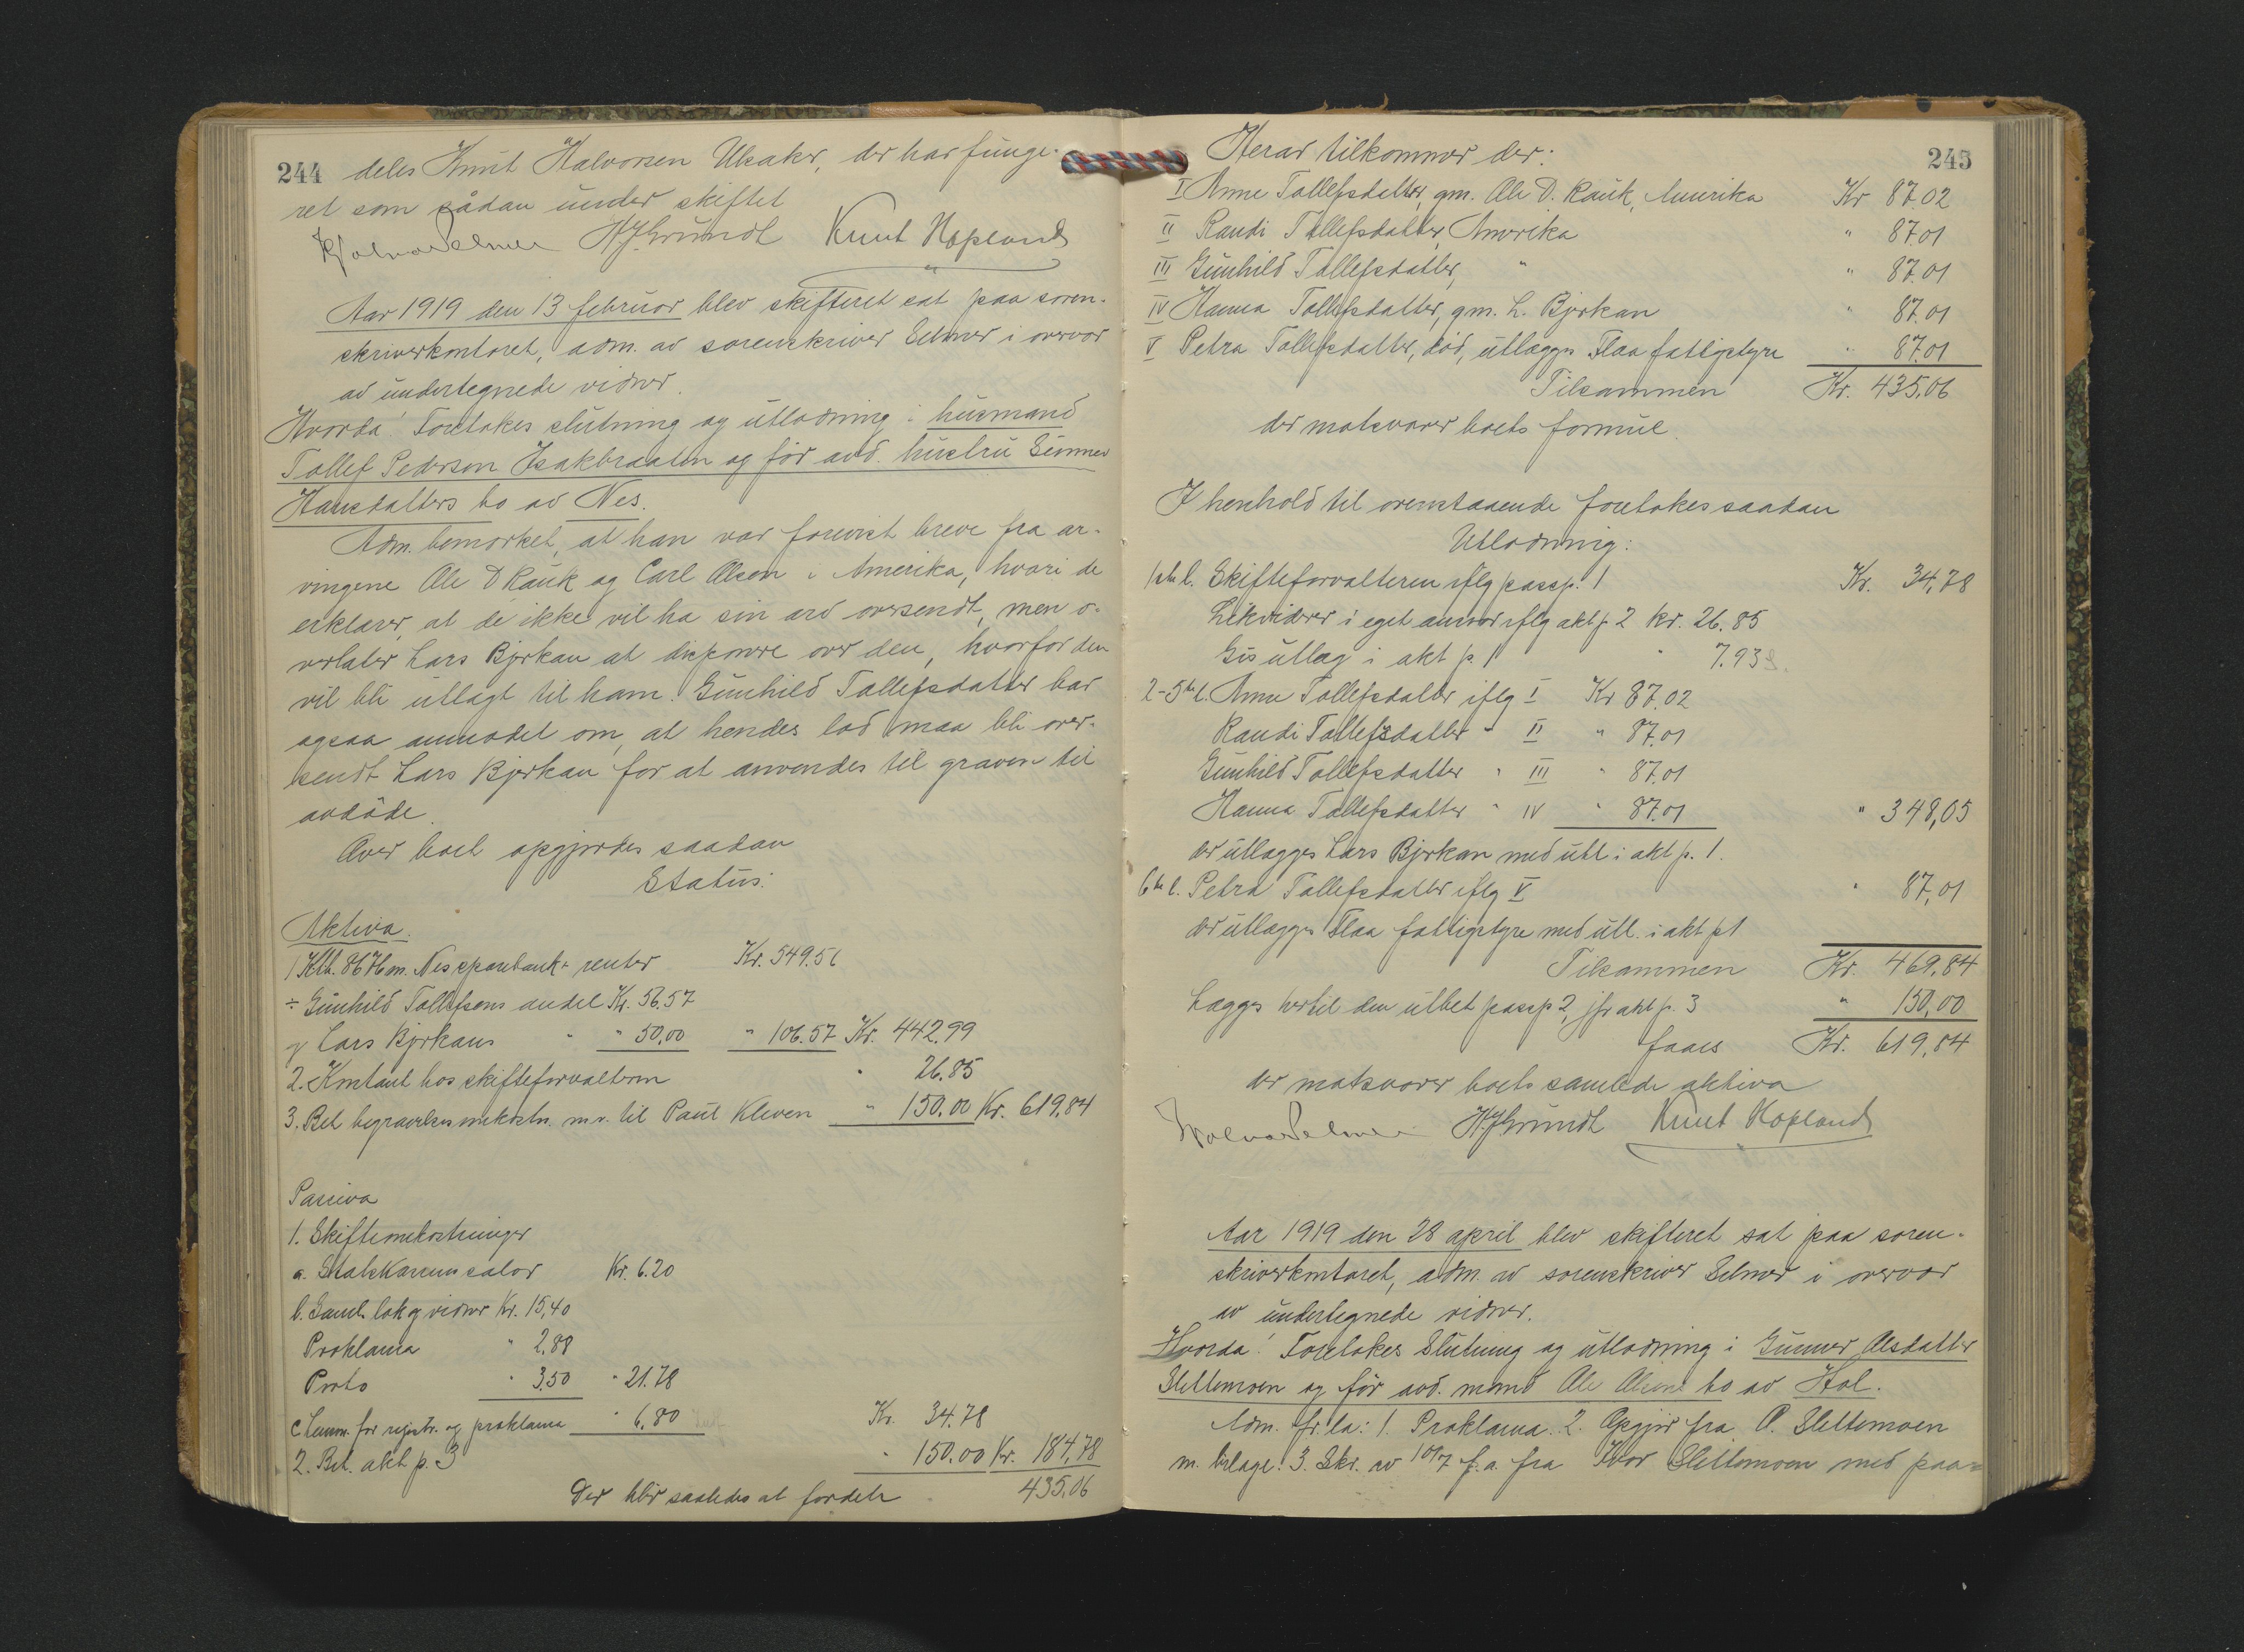 244 deles Knut Halvorsen Ulsaker, der har funge-
ret som sådan under skiftet
Halvor Selmer HJGrundt Knut Hopland
Aar 1919 den 13 februar blev skifteret sat paa soren-
skriverkontoret, adm. av sorenskriver Selmer i overvær
av undertegnede vidner.
Hvorda! Foretokes slutning og utlodning i husmand
Tollef Pedersen Isakbraaten og før avd. hustru Gunner
Hansdatters bo av Nes.
Adm. bemerket, at han var forevist breve fra ar-
vingene Ole D Rauk og Carl Olsen i Amerika, hvori de
erklærer, at de ikke vil ha sin arv oversendt, men o-
verlater Lars Bjerkan at disponere over den, hvorfor den
vil bli utlagt til ham. Gunhild Tollefsdatter har
ogsaa anmodet om, at hendes lod maa bli over-
sendt Lars Bjerkan for at anvendes til graven til
avdöde.
Over boet opgjordes saadan
Status:
Aktiva.
1 Ktb. 8676 m. Nes sparebank + renter Kr. 549.56
÷ Gunhild Tollefsens andel Kr. 56.57
og Lars Bjerkans " " 50,00 " 106.57 Kr. 442.99
2. Kontant hos skifteforvalteren " 26.85
3. Bet begravelsesomkostn. m.v. til Paul Kleven " 150.00 Kr. 619,84
Passiva
1. Skifteomkostninger
a. Statskassens salær Kr. 6.20
b. Saml. lok og vidner Kr. 15,40
Proklama " 2,88
Porto " 3,50 " 21.78
c Lensm. for registr. og proklama " 6,80 Kr. 34.78
2. Bet. akt p. 3 " 150.00 Kr. 184,78
Der blir saaledes at fordele 435,06
Herav tilkommer der: 245
I Anne Tollefsdatter, gm. Ole D. Rauk, Amerika Kr 87.02
II Randi Tollefsdatter, Amerika " 87.01
III Gunhild Tollefsdatter, " " 87.01
IV Hanna Tollefsdatter, gm. L. Bjerkan " 87.01
V Petra Tollefsdatter, död, utlægges Flaa fattigstyre " 87.01
Tilsammen Kr. 435,06
der motsvarer boets formue.
I henhold til ovenstaaende foretokes saadan
Utlodning:
1ste l. Skifteforvalteren iflg passp. 1 Kr. 34,78
Likviderer i eget ansvar iflg akt p 2 kr. 26.85
Gis utlæg i akt p. 1 " 7.93
2-5te l. Anne Tollefsdatter iflg I Kr 87.02
Randi Tollefsdatter " II " 87.01
Gunhild Tollefsdatter " III " 87.01
Hanna Tollefsdatter " IV " 87.01 " 348,05
der utlægges Lars Bjerkan med utl i akt p. 1.
6te l. Petra Tollefsdatter iflg V " 87,01
der utlægges Flaa fattigstyre med utl. i akt p 1
Tilsammen Kr. 469,84
Lægges hertil den utbet passp 2, jfr akt p. 3 " 150,00
faaes Kr. 619,84
der motsvarer boets samlede aktiva
Halvor Selmer HJGrundt Knut Hopland
Aar 1919 den 28 april blev skifteret sat paa soren-
skriverkontoret, adm. av sorenskriver Selmer i overvær
av undertegnede vidner.
Hvorda! Foretokes Slutning og utlodning i Gunner Olsdatter
Slettemoen og før avd. mand Ole Olsens bo av Hol.
Adm. fr.la: 1. Proklama. 2. Opgjør fra O. Slettemoen
m. bilage. 3. Skr. av 10/7 f.a. fra Ivar Slettemoen med paa-